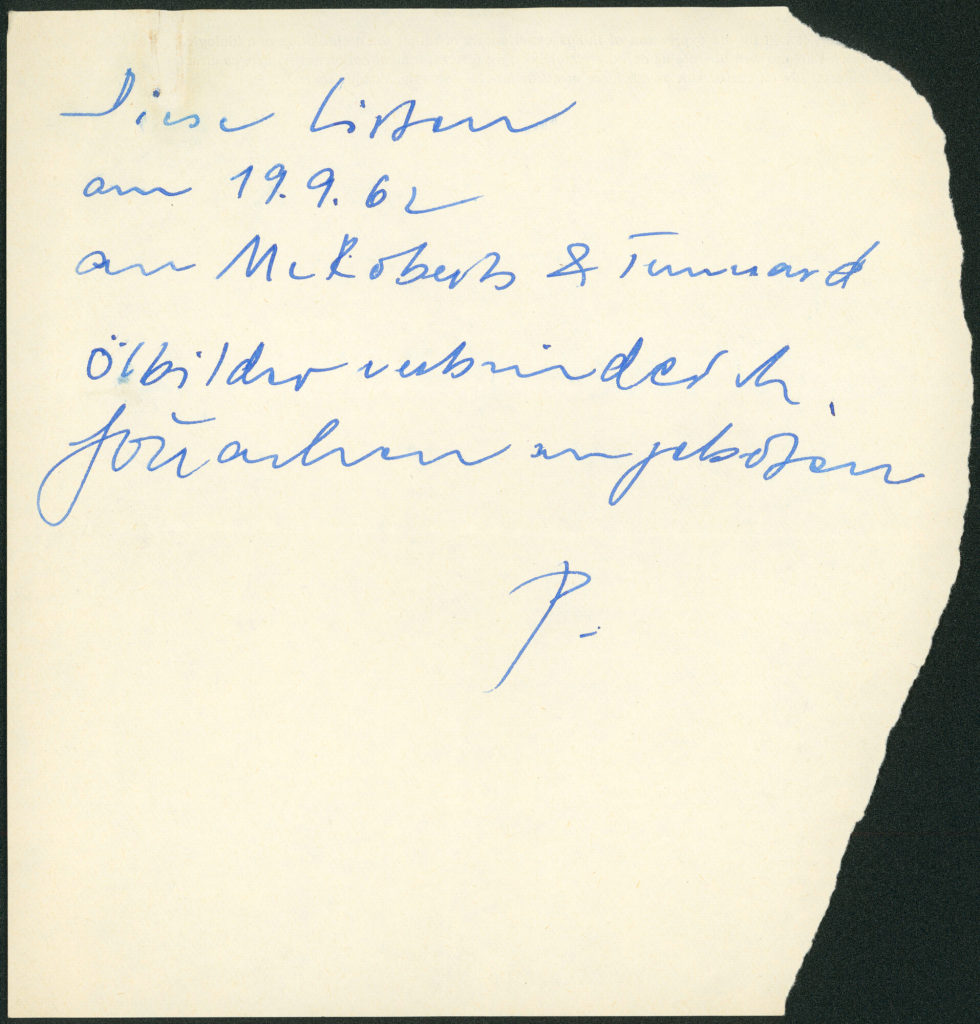 Diese Listen
am 19.9.62
an McRoberts & Tunnard
Ölbilder verbindlich,
Gouachen angeboten
P.